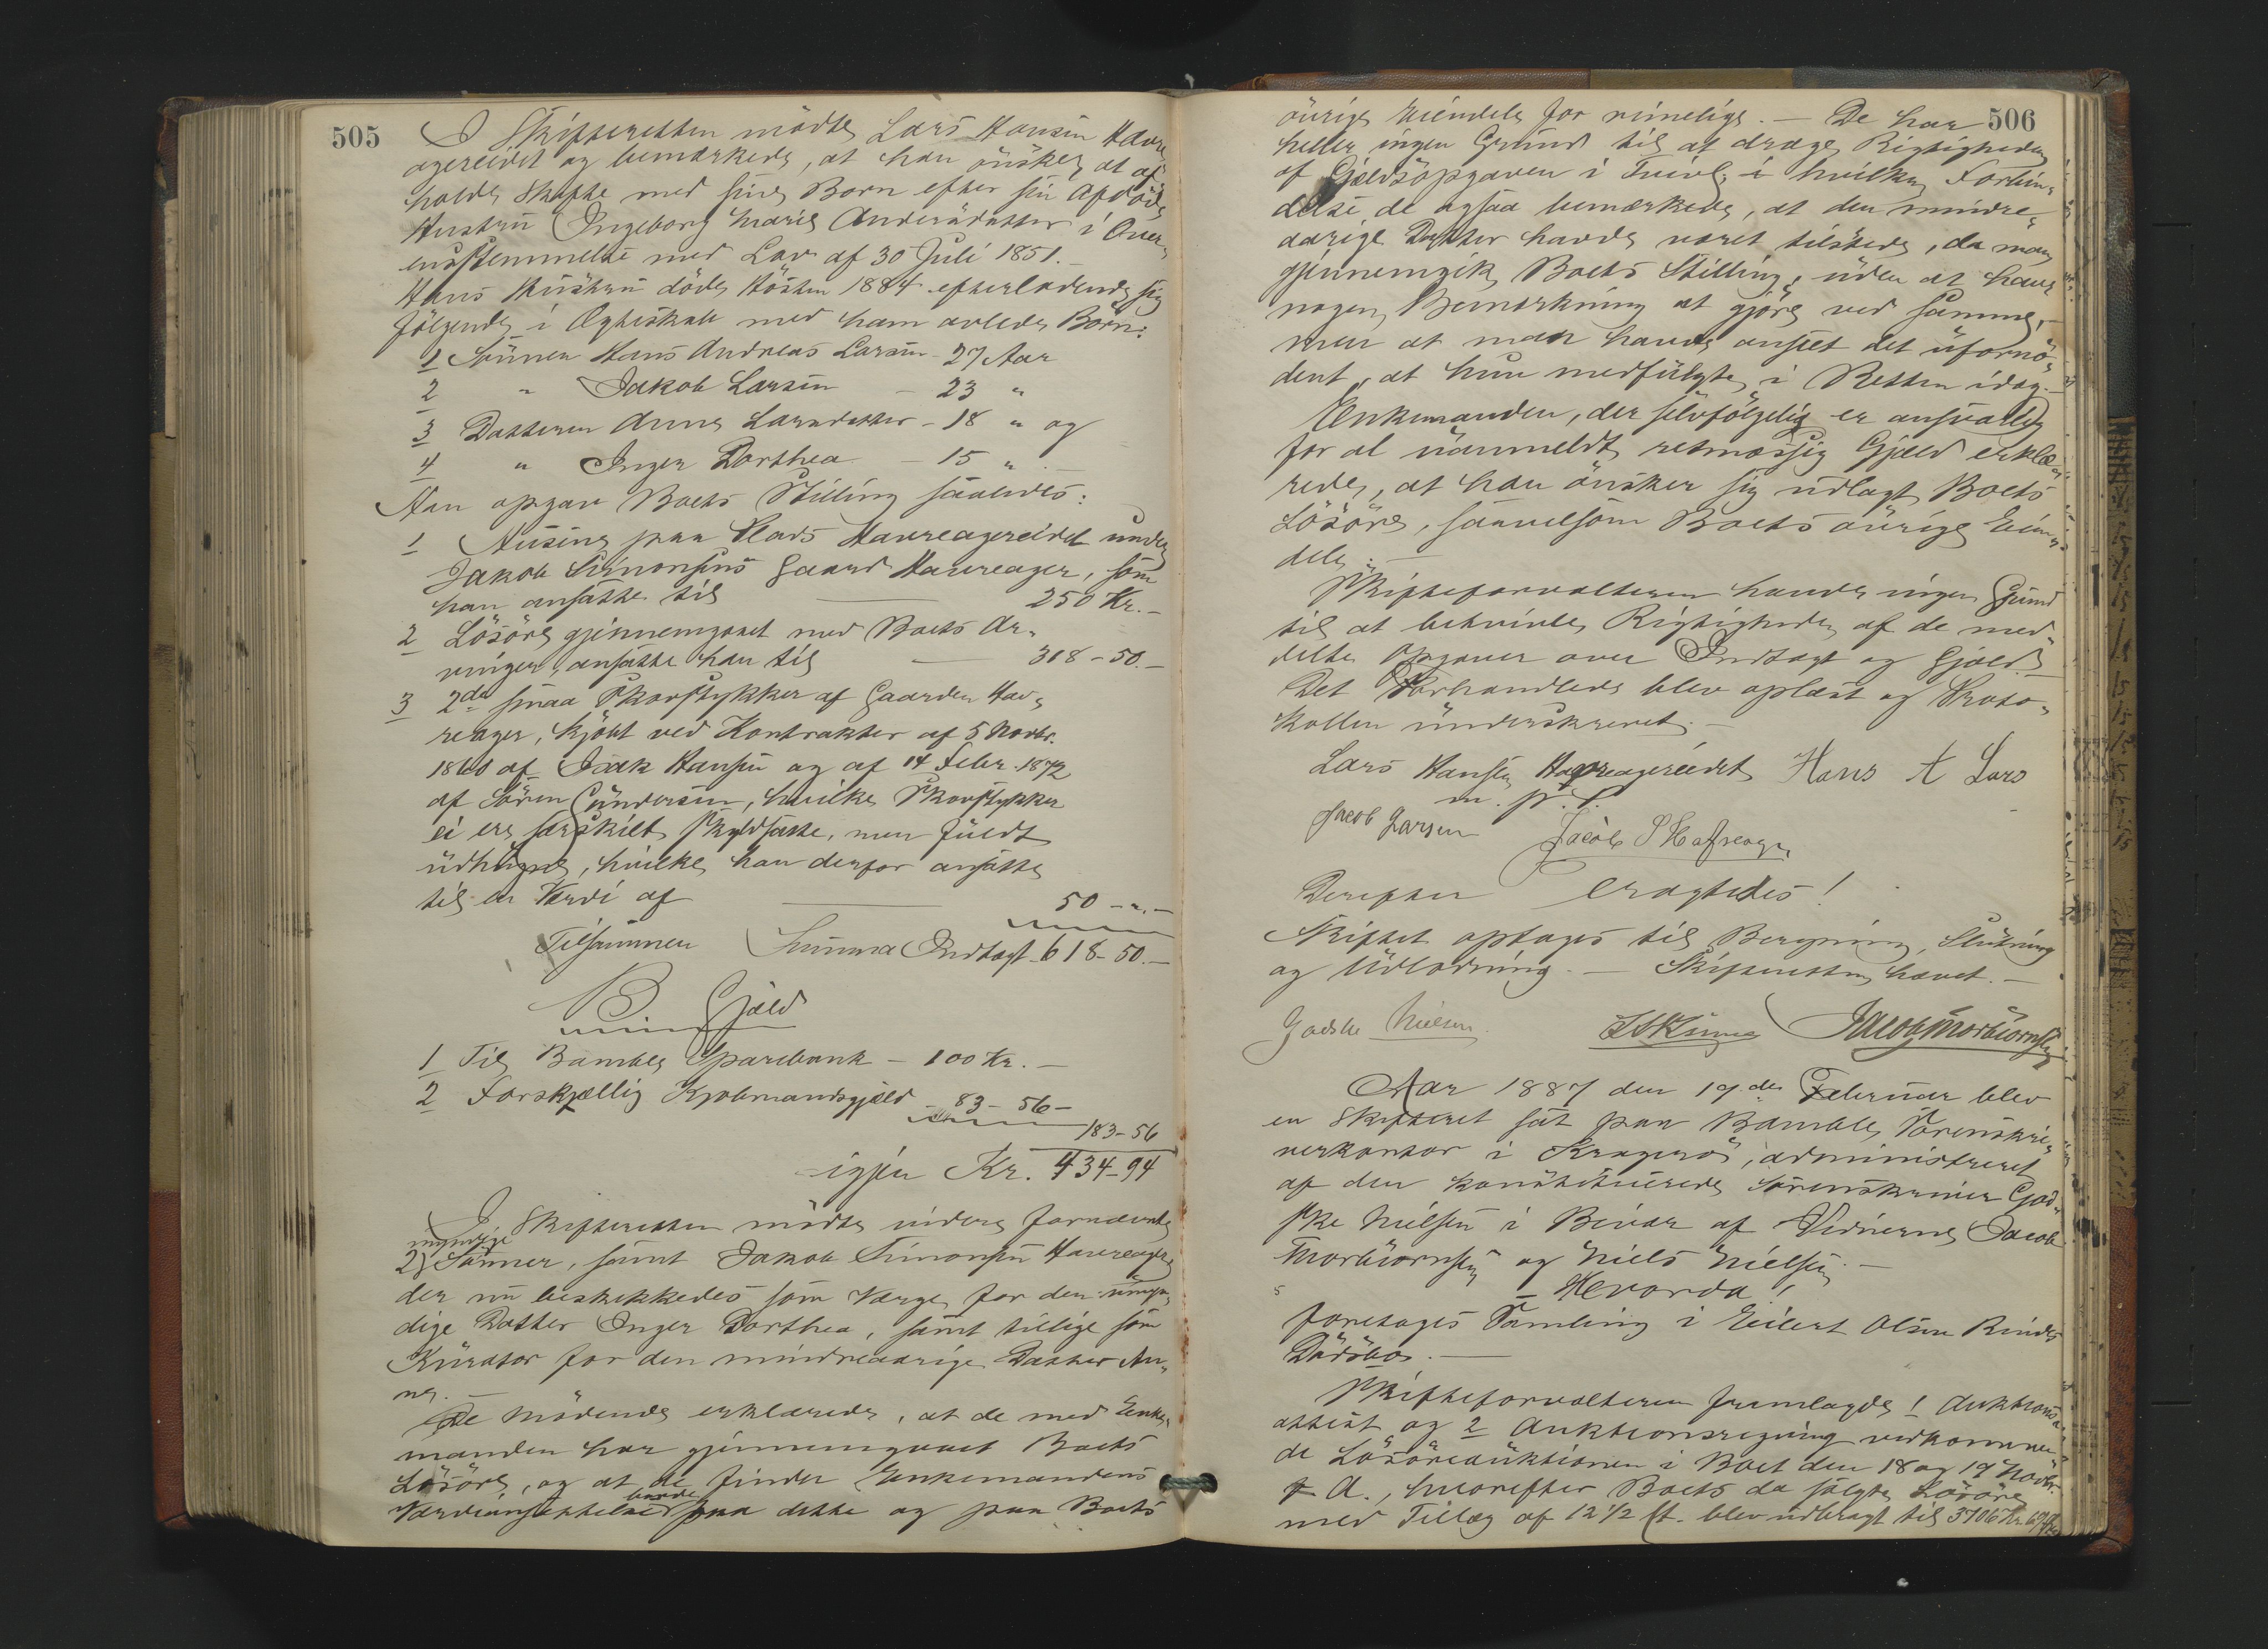 505
I Skifteretten mödte Lars Hansen Havre-
agereidet og bemærkede, at han önsker at af-
holde Skifte med sine Börn efter sin afdöde
Hustru Ingeborg Marie Andersdatter i Over-
ensstemmelse med Lov af 30 Juli 1851.
Hans Hustru döde Hösten 1884 efterladende sig
fölgende i Ægteskab med ham avlede Börn:
1 Sönnen Hans Andreas Larsen - 27 Aar
2 " Jakob Larsen - 23 "
3 Datteren Anne Larsdatter - 18 " og
4 " Inger Dorthea - 15 ". -
Han opgav Boets Stilling saaledes:
1 Husene paa Plads Havreagereidet under
Jakob Simonsens Gaard Havreager, som
han ansatte til 250 Kr. -
2 Lösöre gjennemgaaet med Boets Ar-
vinger, ansatte han til 318 - 50. -
3 2de smaa Skovstykker af Gaarden Hav-
reager, kjöbt ved Kontrakter af 5 Novbr.
1860 af Isak Hansen og af 14 Febr. 1872
af Sören Gundersen, hvilke Skovstykker
ei ere særskilt skyldsatte, men fuldt
udhugne, hvilke han derfor ansatte
til en Værdi af 50 - ". -
Tilsammen Summa Indtægt 618 - 50. -
B Gjæld
1 Til Bamble Sparebank - 100 Kr. -
2 Forskjællig Kjöbmandsgjæld - 83 - 56 -
183 - 56
igjen Kr. 434 - 94
I Skifteretten mödte videre fornævnte
myndige
2 Sönner, samt Jakob Simonsen Havreager,
der nu beskikkedes som Værge for den umyn-
dige Datter Inger Dorthea, samt tillige som
Kurator for den mindreaarige Datter An-
ne. -
De Mödende erklærede, at de med Enke-
manden har gjennemgaaet Boets
Lösöre, og at de finder Enkemandens
baade
Værdiansættelse paa dette og paa Boets
506
övrige Eiendele for rimelige. - De har
heller ingen Grund til at drage Rigtigheden
af Gjældsopgaven i Tvivl, i hvilken Forbin-
delse de ogsaa bemærkede, at den mindre-
aarige Datter havde været tilstede, da man
gjennemgik Boets Stilling, uden at have
nogen Bemærkning at gjöre ved samme,
men at man havde anseet det ufornö-
dent, at hun medfulgte i Retten idag. -
Enkemanden, der selvfölgelig er ansvarlig
for al uanmeldt retmæssig Gjæld erklæ-
rede, at han önsker sig udlagt Boets
Lösöre, saavelsom Boets övrige Eien-
dele. -
Skifteforvalteren havde ingen Grund
til at betvivle Rigtigheden af de med-
delte Opgaver over Indtægt og Gjæld. -
Det Forhandlede blev oplæst og Proto-
kollen underskrevet. -
Lars Hansen Havreagereidet Hans A Lars
m. p. P.
Jacob Larsen Jacob S Hafreager
Derefter eragtedes!
Skiftet optages til Beregning, Slutning
og Udlodning. - Skifteretten hævet. -
Godske Nielsen. Jacob Thorbiörnsen
Aar 1887 den 19de Februar blev
en Skifteret sat paa Bamble Sörenskri-
verkontor i Kragerö, administreret
af den konstituerede Sörenskriver God-
ske Nielsen i Bivær af Vidnerne Jacob
Thorbiörnsen og Niels Nielsen. -
Hvorda!
foretages Samling i Eilert Olsen Rinde
Dödsbo. -
Skifteforvalteren fremlagde 1 Auktions-
attest og 2 Auktionsregning vedkommen-
de Lösöreauktionen i Boet den 18 og 19 Novbr.
f. A., hvorefter Boets da solgte Lösöre
med Tillæg af 12 1/2 ct. blev udbragt til 3706 Kr.